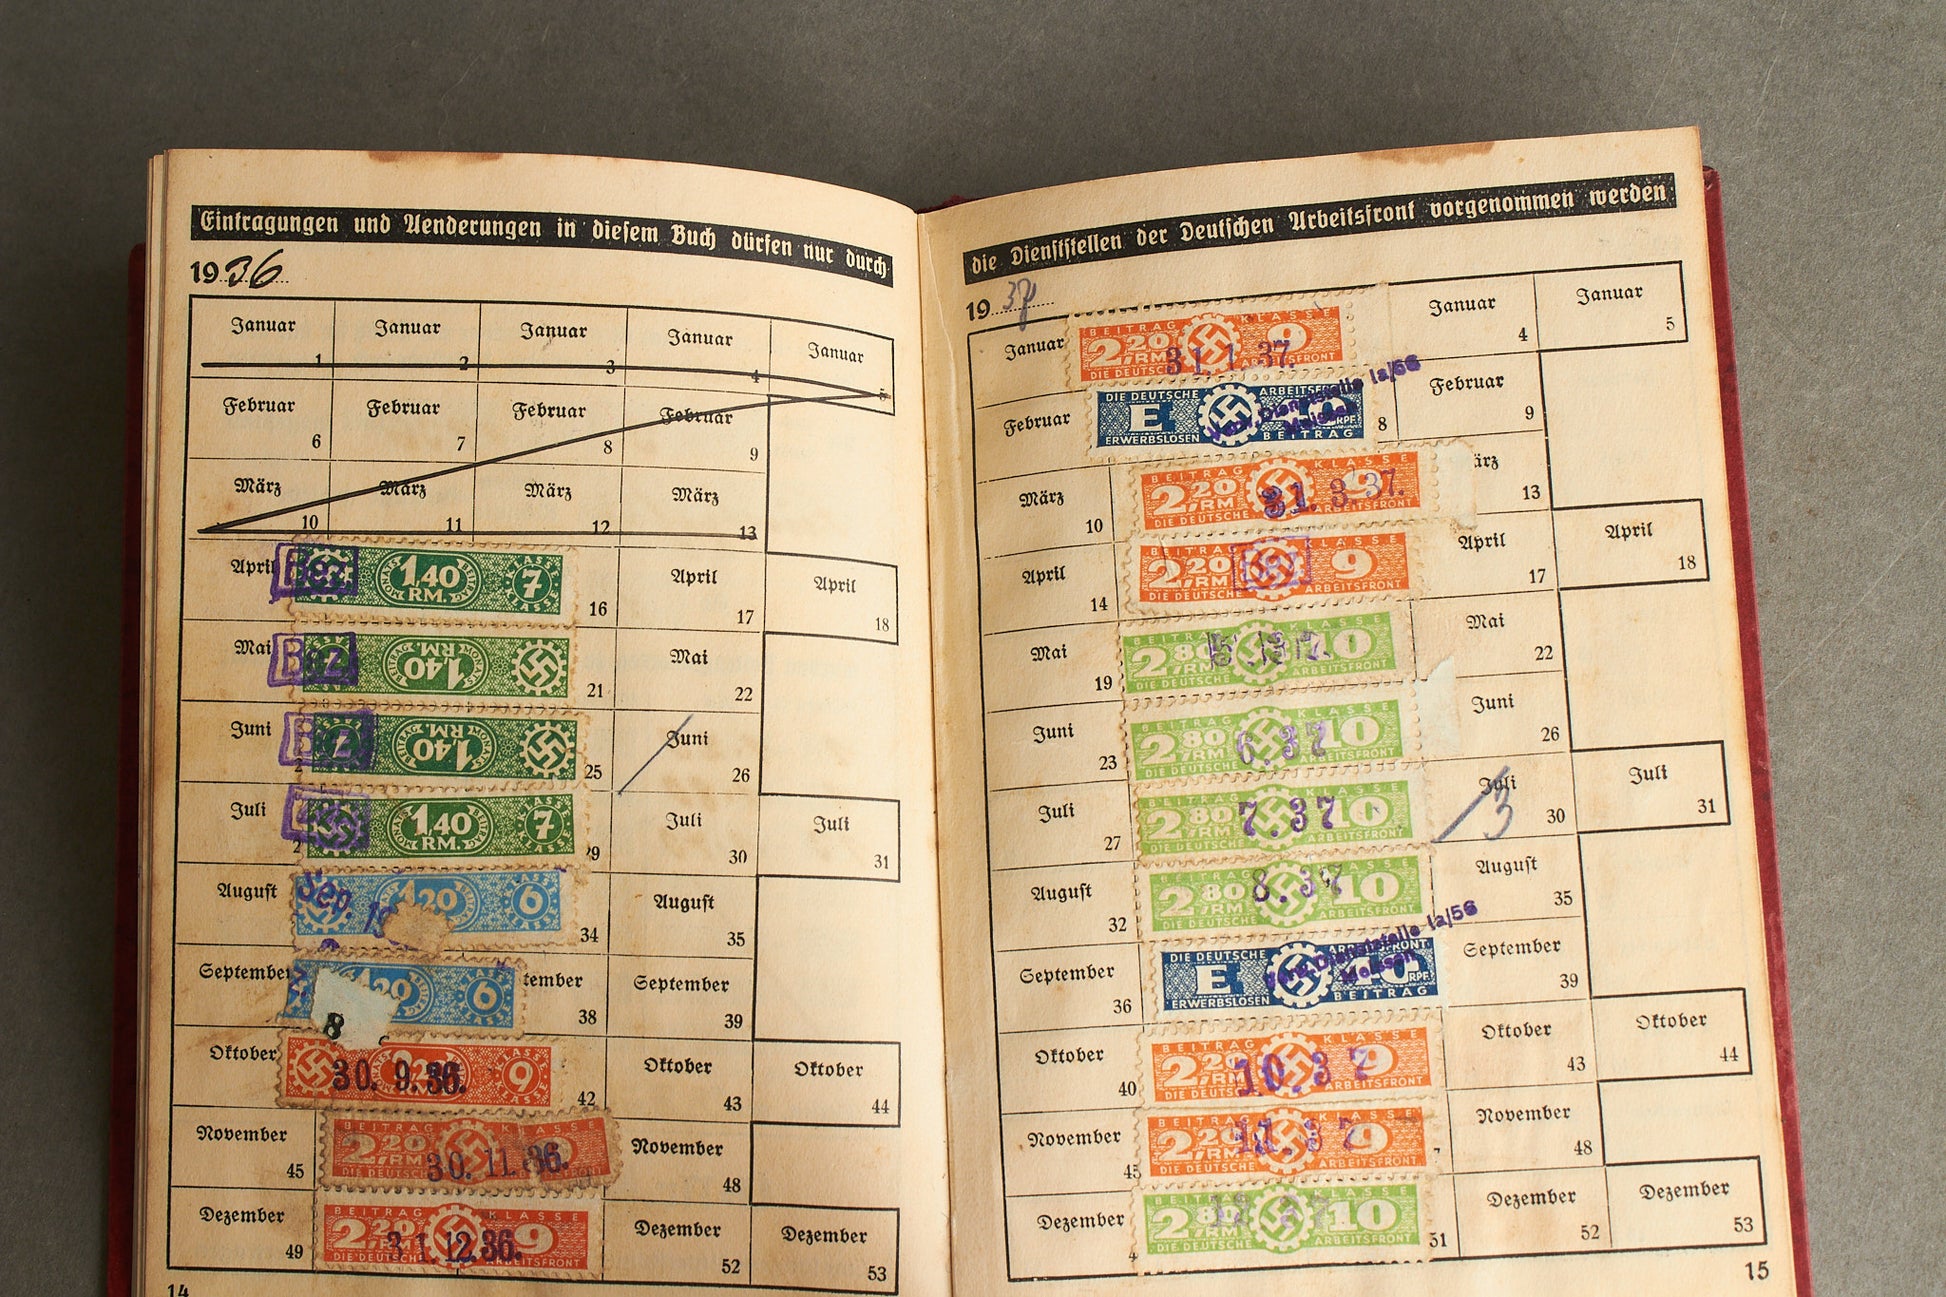 Eintragungen und Aenderungen in diesem Buch dürfen nur durch
1936
Januar 1 Januar 2 Januar 3 Januar 4 Januar 5
Februar 6 Februar 7 Februar 8 Februar 9
März 10 März 11 März 12 März 13
April Bez 1,40 RM. MONATS BEITRAG 7 KLASSE 16 April 17 April 18
Mai Bez 1,40 RM. MONATS BEITRAG 21 Mai 22
Juni Bez 1,40 RM. MONATS BEITRAG 25 Juni 26
Juli 1,40 RM. MONATS BEITRAG 7 KLASSE 29 Juli 30 Juli 31
August Sep. 1,20 6 KLASSE 34 August 35
September 1,20 6 KLASSE tember 38 September 39
8
Oktober 30. 9. 36. 9 KLASSE 42 Oktober 43 Oktober 44
November 45 BEITRAG KLASSE 2,20 RM 30. 11. 36. DIE DEUTSCHE November 48
Dezember 49 BEITRAG KLASSE 2,20 RM 9 31. 12. 36. DIE DEUTSCHE ARBEITSFRONT Dezember 52 Dezember 53
14
die Dienststellen der Deutschen Arbeitsfront vorgenommen werden
1937
Januar BEITRAG KLASSE 2,20 RM 9 31. 1. 37. DIE DEUTSCHE ARBEITSFRONT Januar 4 Januar 5
Februar DIE DEUTSCHE ARBEITSFRONT E 10 RPF. ERWERBSLOSEN BEITRAG Dienststelle Ia/56 Meissen 8 Februar 9
März 10 BEITRAG KLASSE 2,20 RM 9 31. 3. 37. DIE DEUTSCHE ARBEITSFRONT ärz 13
April 14 BEITRAG KLASSE 2,20 RM 9 DIE DEUTSCHE ARBEITSFRONT April 17 April 18
Mai 19 BEITRAG KLASSE 2,80 RM 10 DIE DEUTSCHE ARBEITSFRONT Mai 22
Juni 23 BEITRAG KLASSE 2,80 RM 10 6. 37 DIE DEUTSCHE ARBEITSFRONT Juni 26
Juli 27 BEITRAG KLASSE 2,80 RM 10 7. 37 DIE DEUTSCHE ARBEITSFRONT Juli 3 30 Juli 31
August 32 BEITRAG KLASSE 2,80 RM 10 8. 37 DIE DEUTSCHE ARBEITSFRONT August 35
September 36 DIE DEUTSCHE ARBEITSFRONT E 10 RPF. ERWERBSLOSEN BEITRAG Dienststelle Ia/56 Meissen September 39
Oktober 40 BEITRAG KLASSE 2,20 RM 9 10. 37 DIE DEUTSCHE ARBEITSFRONT Oktober 43 Oktober 44
November 45 BEITRAG KLASSE 2,20 RM 9 11. 37 DIE DEUTSCHE ARBEITSFRONT November 48
Dezember BEITRAG KLASSE 2,80 RM 10 12 37 DIE DEUTSCHE ARBEITSFRONT 51 Dezember 52 Dezember 53
15